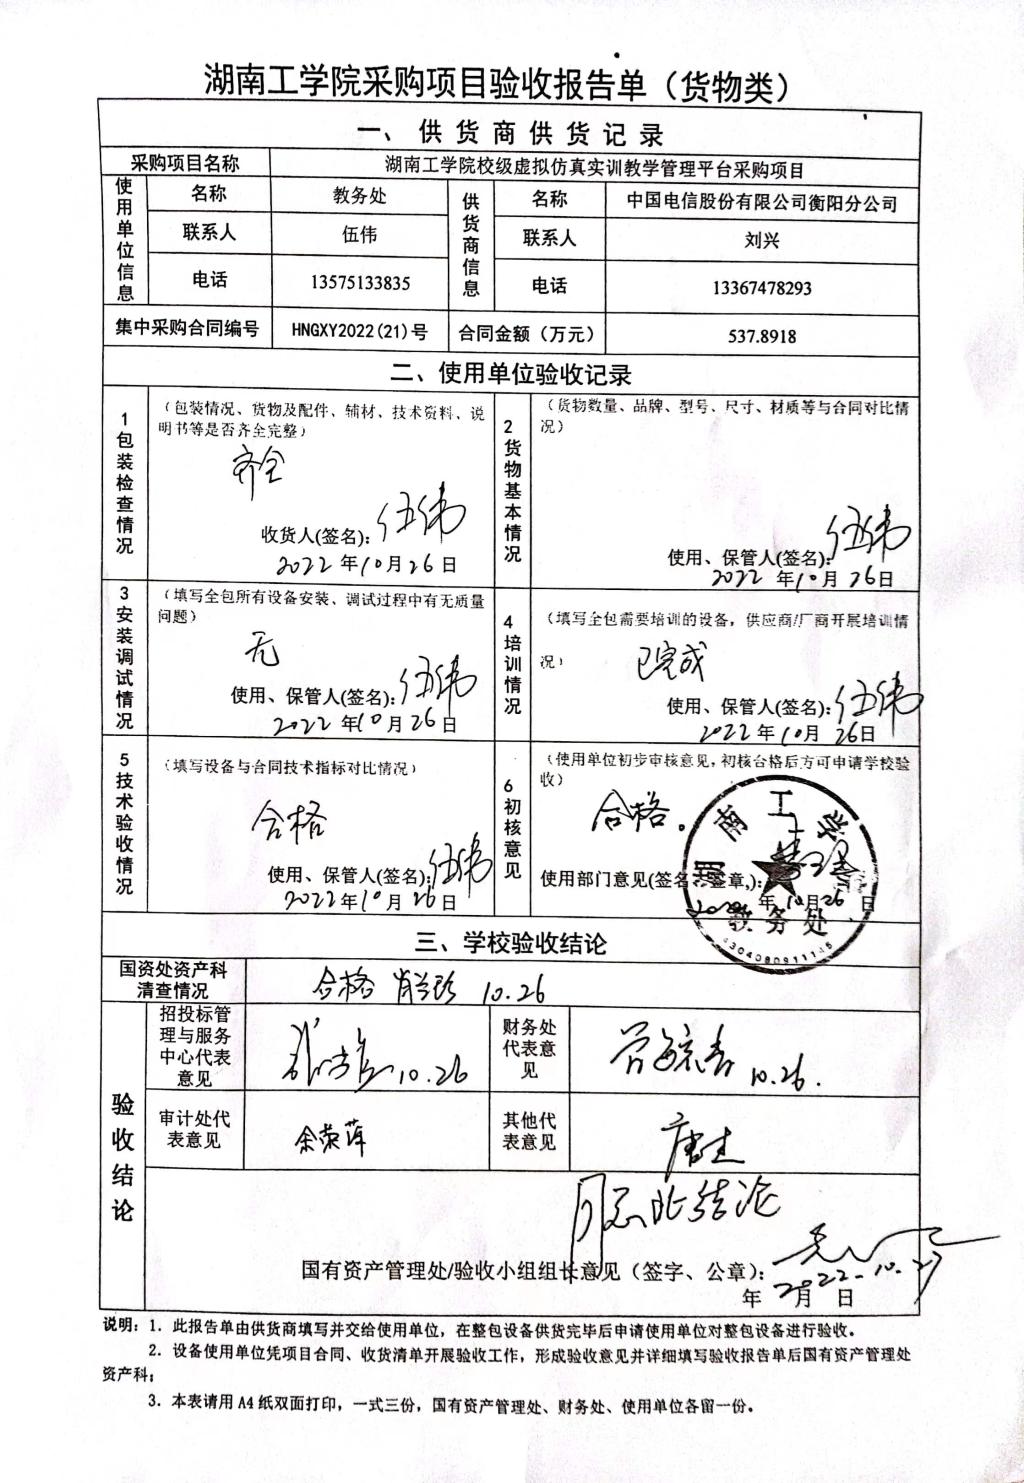 湖南工学院采购项目验收报告单（货物类）
一、供货商供货记录
采购项目名称 湖南工学院校级虚拟仿真实训教学管理平台采购项目
使用单位信息 名称 教务处 供货商信息 名称 中国电信股份有限公司衡阳分公司
联系人 伍伟 联系人 刘兴
电话 13575133835 电话 13367478293
集中采购合同编号 HNGXY2022(21)号 合同金额（万元） 537.8918
二、使用单位验收记录
1包装检查情况
（包装情况、货物及配件、辅材、技术资料、说
明书等是否齐全完整）
齐全
收货人(签名)：伍伟
2022年10月26日
2货物基本情况
（货物数量、品牌、型号、尺寸、材质等与合同对比情
况）
使用、保管人(签名)：伍伟
2022年10月26日
3安装调试情况
（填写全包所有设备安装、调试过程中有无质量
问题）
无
使用、保管人(签名)：伍伟
2022年10月26日
4培训情况
（填写全包需要培训的设备，供应商/厂商开展培训情
况）
已完成
使用、保管人(签名)：伍伟
2022年10月26日
5技术验收情况
（填写设备与合同技术指标对比情况）
合格
使用、保管人(签名)：伍伟
2022年10月26日
6初核意见
（使用单位初步审核意见，初核合格后方可申请学校验
收）
合格。
使用部门意见(签名、签章)：
2022年10月26日
湖南工学院
教务处
4304080911145
三、学校验收结论
国资处资产科
清查情况
合格 肖兰珍 10.26
验收结论
招投标管
理与服务
中心代表
意见
10.26
财务处
代表意
见
曾毓春 10.26.
审计处代
表意见
余荣萍
其他代
表意见
唐杰
同意此结论
国有资产管理处/验收小组组长意见（签字、公章）：
2022.10.27
年 月 日
说明：1. 此报告单由供货商填写并交给使用单位，在整包设备供货完毕后申请使用单位对整包设备进行验收。
2. 设备使用单位凭项目合同、收货清单开展验收工作，形成验收意见并详细填写验收报告单后国有资产管理处
资产科；
3. 本表请用 A4 纸双面打印，一式三份，国有资产管理处、财务处、使用单位各留一份。